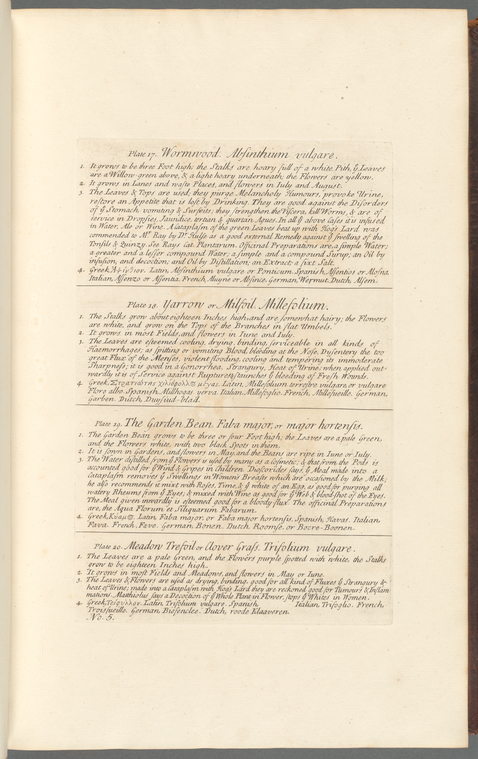 Plate 17. Wormwood. Absinthium vulgare.
1. It grows to be three Foot high; the Stalks are hoary full of a white Pith, ẙ Leaves
are a Willow-green above, & a light hoary underneath; the Flowers are yellow.
2. It grows in Lanes and waste Places, and flowers in Iuly and August.
3. The Leaves & Tops are used, they purge Melancholy Humours, provoke Urine,
restore an Appetite that is lost by Drinking. They are good against the Disorders
of ẙ Stomach, vomiting & Surfeits; they strengthen the Viscera, kill Worms, & are of
service in Dropsies, Iaundice, tertian & quartan Agues. In all ẙ above Cases it is infused
in Water, Ale or Wine. A Cataplasm of the green Leaves beat up with Hogs Lard was
commended to Mr. Ray by Dr. Hulse as a good external Remedy against ẙ swelling of the
Tonsils & Quinzy. See Rays Cat. Plantarum. Officinal Preparations are, a simple Water;
a greater and a lesser compound Water; a simple and a compound Surup; an Oil by
infusion, and decoction; and Oil by Distillation; an Extract; a fixt Salt.
4. Greek, Latin, Absinthium vulgare or Ponticum. Spanish, Assentios or Alosna.
Italian, Assenzo or Assentia. French, Aluyne or Absince. German, Wermut. Dutch, Alsem.
Plate 18. Yarrow or Milfoil. Millefolium.
1. The Stalks grow about eighteen Inches high, and are somewhat hairy; the Flowers
are white, and grow on the Tops of the Branches in flat Umbels.
2. It grows in most Fields, and flowers in Iune and Iuly.
3. The Leaves are esteemed cooling, drying, binding, serviceable in all kinds of
Haemorrhages, as spitting or vomiting Blood, bleeding at the Nose, Dysentery, the too
great Flux of the Menses, violent flooding, cooling and tempering its immoderate
Sharpness; it is good in a Gonorrhea, Strangury, Heat of Urine: when applied out-
wardly it is of Service against Ruptures, staunches ẙ bleeding of Fresh Wounds.
4. Greek, Latin, Millefolium terrestre vulgare, or vulgare
Flore albo. Spanish, Milhoyas yerva. Italian, Millefoglio. French, Millefueille. German,
Garben. Dutch, Duisiud-blad.
Plate 19. The Garden Bean. Faba major, or major hortensis.
1. The Garden Bean grows to be three or four Foot high; the Leaves are a pale Green,
and the Flowers white, with two black Spots in them.
2. It is sown in Gardens, and flowers in May, and the Beans are ripe in Iune or Iuly.
3. The Water distilled from ẙ Flowers is used by many as a Cosmetic; & that from the Pods is
accounted good for ẙ Wind & Gripes in Children. Dioscorides says, ẙ Meal made into a
Cataplasm removes ẙ Swellings in Womens Breasts which are occasioned by the Milk;
he also recommends it mixt with Roses, & ẙ white of an Egg, as good for purging all
watery Rheums from ẙ Eyes; & mixed with Wine as good for ẙ Web & blood shot of the Eyes.
The Meal given inwardly is esteemed good for a bloody flux. The officinal Preparations
are, the Aqua Florum et Siliquarum Fabarum.
4. Greek, Latin, Faba major, or Faba major hortensis. Spanish, Havas. Italian,
Fava. French, Feve. German, Bonen. Dutch, Roomse, or Bocre-Boonen.
Plate 20. Meadow Trefoil or Clover Grass. Trifolium vulgare.
1. The Leaves are a pale Green, and the Flowers purple spotted with white, the Stalks
grow to be eighteen Inches high.
2. It grows in most Fields and Meadows, and flowers in May or Iune.
3. The Leaves & Flowers are used as drying, binding, good for all kind of Fluxes ẙ Strangury &
heat of Urine; made into a Cataplasm with Hogs Lard they are reckoned good for Tumours & Inflam-
mations. Matthiolus says a Decoction of ẙ whole Plant in Flower, stops ẙ Whites in Women.
4. Greek, Latin, Trifolium vulgare. Spanish, Italian, Trifoglio. French,
Troisfueille. German, Dutch, roode Klaaveren.
No. 5.